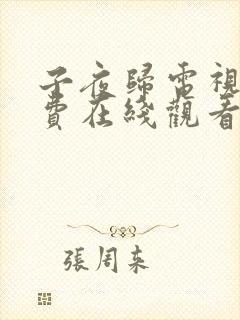 子夜歸電視
費在綫觀看
張周柬